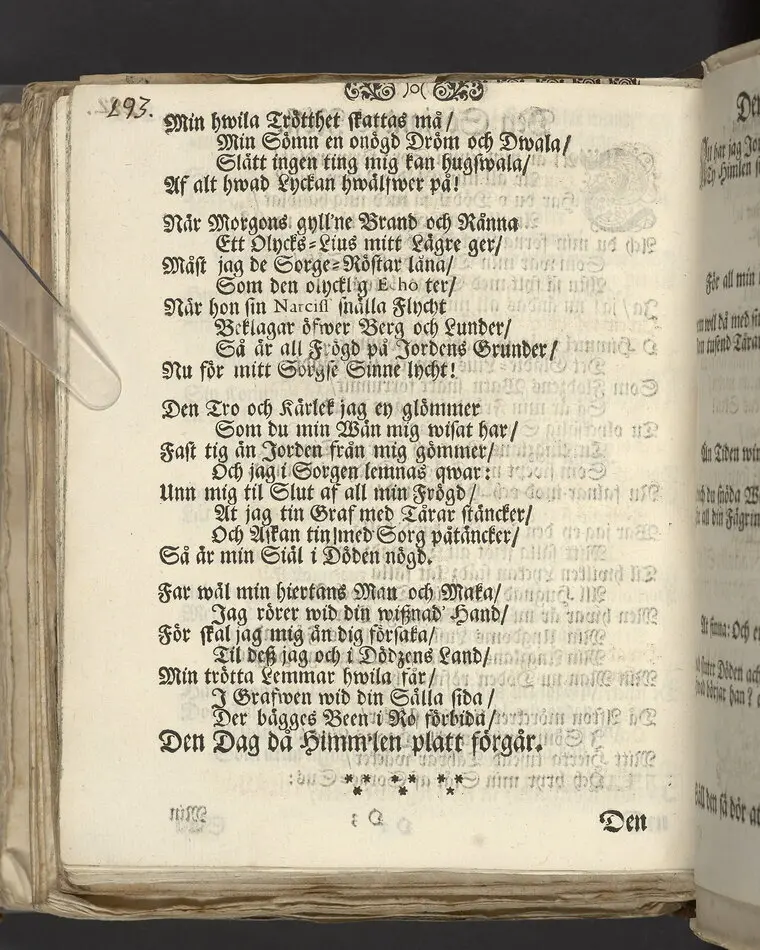 193.
)o(
Min hwila Trötthet skattas må/
Min Sömn en onögd Dröm och Dwala/
Slätt ingen ting mig kan hugswala/
Af alt hwad Lyckan hwälfwer på!
När Morgons gyll'ne Brand och Ränna
Ett Olycks-Lius mitt Lägre ger/
Måst jag de Sorge-Röstar läna/
Som den olycklig Echo ter/
När hon sin Narciss snälla Flycht
Beklagar öfwer Berg och Lunder/
Så är all Frögd på Jordens Grunder/
Nu för mitt Sorgse Sinne lycht!
Den Tro och Kärlek jag ey glömmer
Som du min Wän mig wisat har/
Fast tig än Jorden från mig gömmer/
Och jag i Sorgen lemnas qwar:
Unn mig til Slut af all min Frögd/
At jag tin Graf med Tårar stäncker/
Och Askan tin med Sorg påtäncker/
Så är min Siäl i Döden nögd.
Far wäl min hiertans Man och Maka/
Jag rörer wid din wißnad' Hand/
För skal jag mig än dig försaka/
Til deß jag och i Dödzens Land/
Min trötta Lemmar hwila får/
I Grafwen wid din Sälla sida/
Der bägges Been i Ro förbida/
Den Dag då Himm'len platt förgår.
Den
Den
För all min
Än Tiden